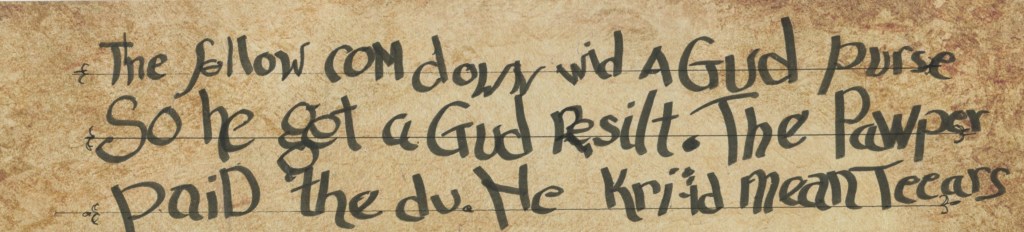 The fellow COM down wid A Gud purse
So he got a Gud Resilt. The Pawper
paiD the du. He Kri-id mean Teears